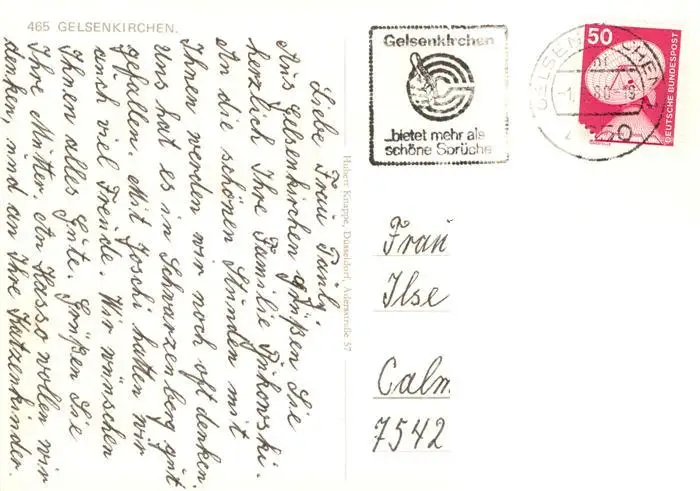 465 GELSENKIRCHEN.
Liebe Frau
Aus Gelsenkirchen grüßen Sie
herzlich Ihre Familie Pipkowski.
An die schönen Stunden mit
Ihnen werden wir noch oft denken.
Uns hat es in Schwarzenberg gut
gefallen. Mit Joschi hatten wir
auch viel Freude. Wir wünschen
Ihnen alles Gute. Grüßen Sie
Ihre Mutter. An Hasso wollen wir
denken, und an Ihre Katzenkinder.
Hubert Knappe, Düsseldorf, Adersstraße 57
Gelsenkirchen
...bietet mehr als
schöne Sprüche
GELSENKIRCHEN
50
DEUTSCHE BUNDESPOST
Frau
Ilse
Calm
7542